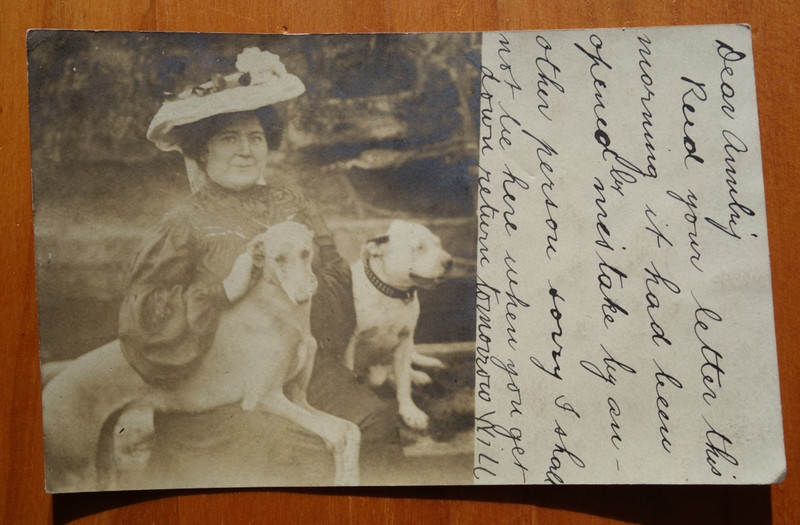 Dear Annly
Recd your letter this
morning it had been
opened by mistake by an-
other person sorry I shall
not be here when you get
down return tomorrow Will